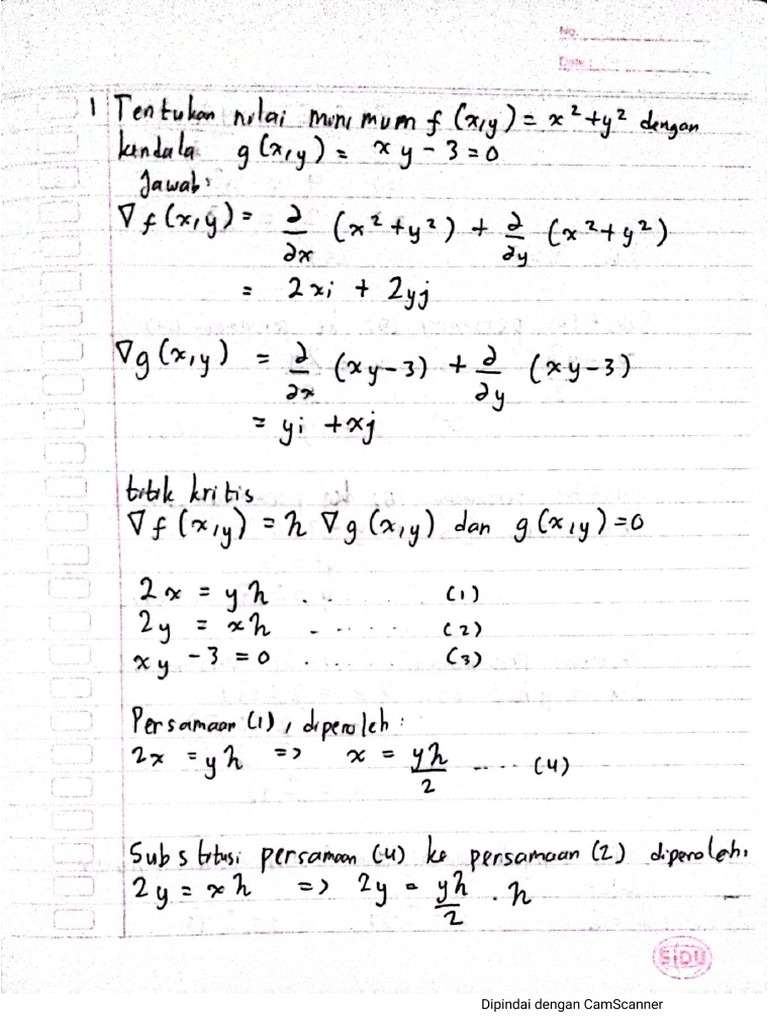 No.
Date:
1 Tentukan nilai minimum f(x,y) = x² + y² dengan
kendala g(x,y) = xy - 3 = 0
Jawab:
∇f(x,y) = ∂/∂x (x² + y²) + ∂/∂y (x² + y²)
= 2xi + 2yj
∇g(x,y) = ∂/∂x (xy - 3) + ∂/∂y (xy - 3)
= yi + xj
titik kritis
∇f(x,y) = λ ∇g(x,y) dan g(x,y) = 0
2x = yλ ... (1)
2y = xλ ...... (2)
xy - 3 = 0 ... (3)
Persamaan (1), diperoleh:
2x = yλ => x = yλ/2 ..... (4)
Substitusi persamaan (4) ke persamaan (2) diperoleh.
2y = xλ => 2y = yλ/2 . λ
SiDU
Dipindai dengan CamScanner